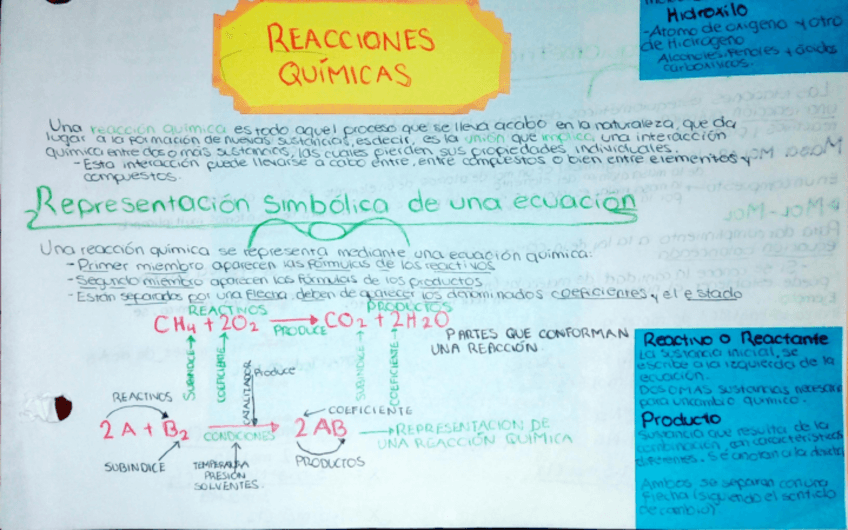 REACCIONES
QUÍMICAS
Hidroxilo
-Atomo de oxigeno y otro
de Hidrogeno
Alcoholes, Fenoles y ácidos
carboxilicos.
Una reacción química es todo aquel proceso que se lleva acabo en la naturaleza, que da
lugar a la formación de nuevas sustancias, es decir, es la unión que implica una interacción
química entre dos o más sustancias, las cuales pierden sus propiedades individuales.
-Esta interacción puede llevarse a cabo entre, entre compuestos o bien entre elementos y
compuestos.
Representación simbólica de una ecuación
Una reacción química se representa mediante una ecuación química:
-Primer miembro aparecen las fórmulas de los reactivos
-Segundo miembro aparecen las fórmulas de los productos
-Están separados por una flecha, deben de aparecer los denominados coeficientes y el estado
REACTIVOS PRODUCTOS
CH4 + 2O2 → PRODUCE CO2 + 2H2O
SUBINDICE
COEFICIENTE
SUBINDICE
COEFICIENTE
PARTES QUE CONFORMAN
UNA REACCIÓN
REACTIVOS
CATALIZADOR
Produce
COEFICIENTE
2A + B2 → CONDICIONES 2AB
→ REPRESENTACION DE
UNA REACCIÓN QUÍMICA
SUBINDICE
TEMPERATURA
PRESIÓN
SOLVENTES
PRODUCTOS
Reactivo o Reactante
La sustancia inicial, se
escribe a la izquierda de la
ecuación.
DOS O MAS sustancias necesarias
para un cambio químico.
Producto
Sustancia que resulta de la
combinación, con características
diferentes. Se anotan a la derecha
Ambos se separan con una
flecha (siguiendo el sentido
de cambio)